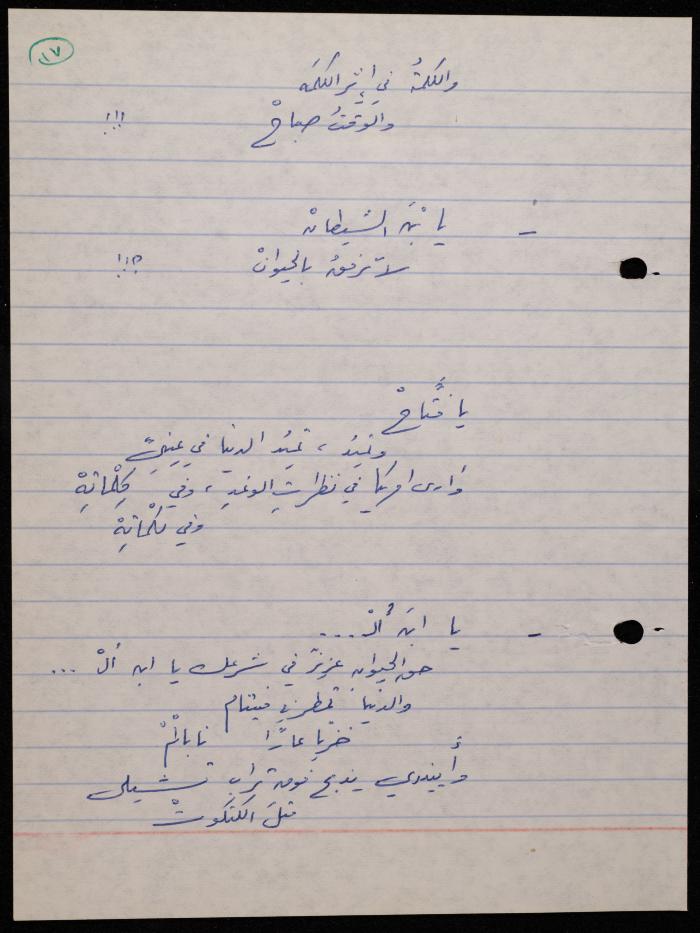 ١٧
والكلمةُ في إثرِ الكلمَه
والوقتُ صباحْ !!!
- يا بْنَ الشيطانْ
لا تَرفقُ بالحيوانْ !!!
يا فتَّاحْ
وتميدُ ، تميدُ الدنيا في عينيَّ
وأرى امريكا في نظراتِ الوغدِ ، وفي كِلْماتِهْ
وفي لكْماتِهْ
- يا ابنَ ألْ....
حق الحيوان عزيزٌ في شرعك يا ابن ألْ ...
والدنيا تمطر في فيتنام
خزيا عارًا نابالْمْ
وأليندي يذبح فوق تراب تشيلي
قتلَ الكتكوتْ